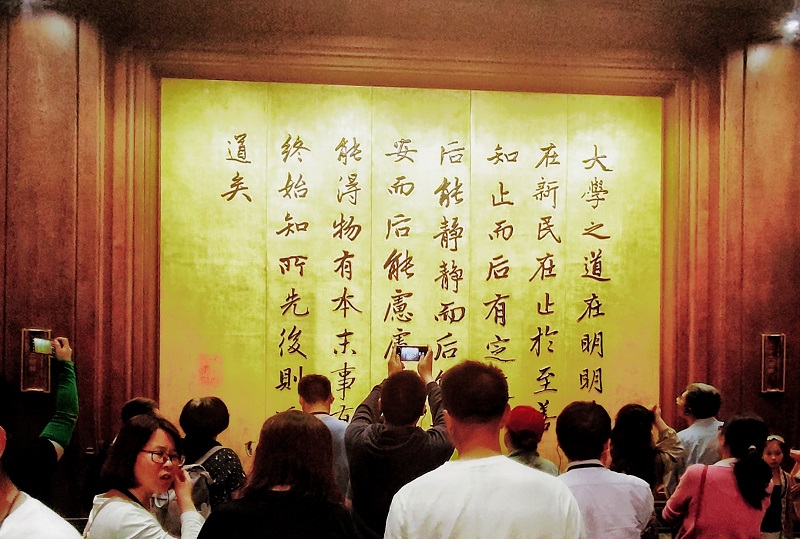 大學之道在明明
在新民在止於至善
知止而后有定
后能靜靜而后
安而后能慮慮
能得物有本末事有
終始知所先後則
道矣